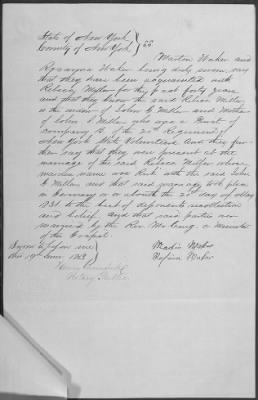 State of New York
County of New York } ss
Martin Weber and
Rosanna Weber being duly sworn say
that they have been acquainted with
Rebeca Miller for the past forty years
and that they know the said Rebeca Miller
as the widow of John G Miller and Mother
of John P Miller who was a Private of
Company B of the 20th Regiment of
New York State Volunteers and they fur-
ther say that they were present at the
marriage of the said Rebeca Miller whose
maiden name was with the said John
G Miller and that said marriage took place
in Germany on about the 20th day of May
1831 to the best of deponents recollection
and belief and that said parties were
married by the Rev. a minister
of the Gospel
Sworn to before me
this 19th June 1863
Notary Public
Weber
Weber